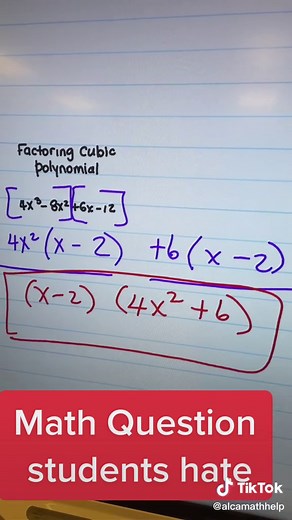 Factoring Cubic
polynomial
[4x³-8x²][+6x-12]
4x²(x-2) +6(x-2)
(x-2) (4x²+6)
Math Question
students hate
TikTok
@alcamathhelp